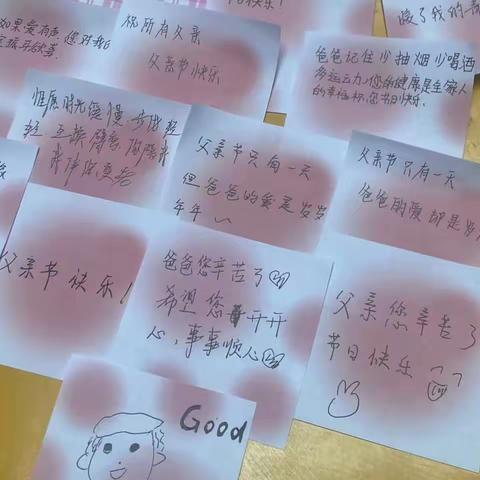 如果爱有声
您对我
祝所有父亲
父亲节快乐
爸爸记住少抽烟少喝酒
多运动，您的健康是全家人
的幸福标，节日快乐.
但愿时光缓慢
父亲节只有一天
但爸爸的爱是岁岁
年年~
父亲节只有一天
爸爸的爱却是岁
父亲节快乐!
爸爸您辛苦了
希望您开开
心，事事顺心
父亲您辛苦了
节日快乐
Good